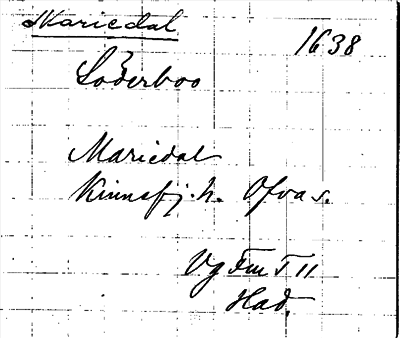 Mariedal
1638
Söderboo
Mariedal
Kinnefj. h. Ofva s.
Vg Fm I 11
Had.